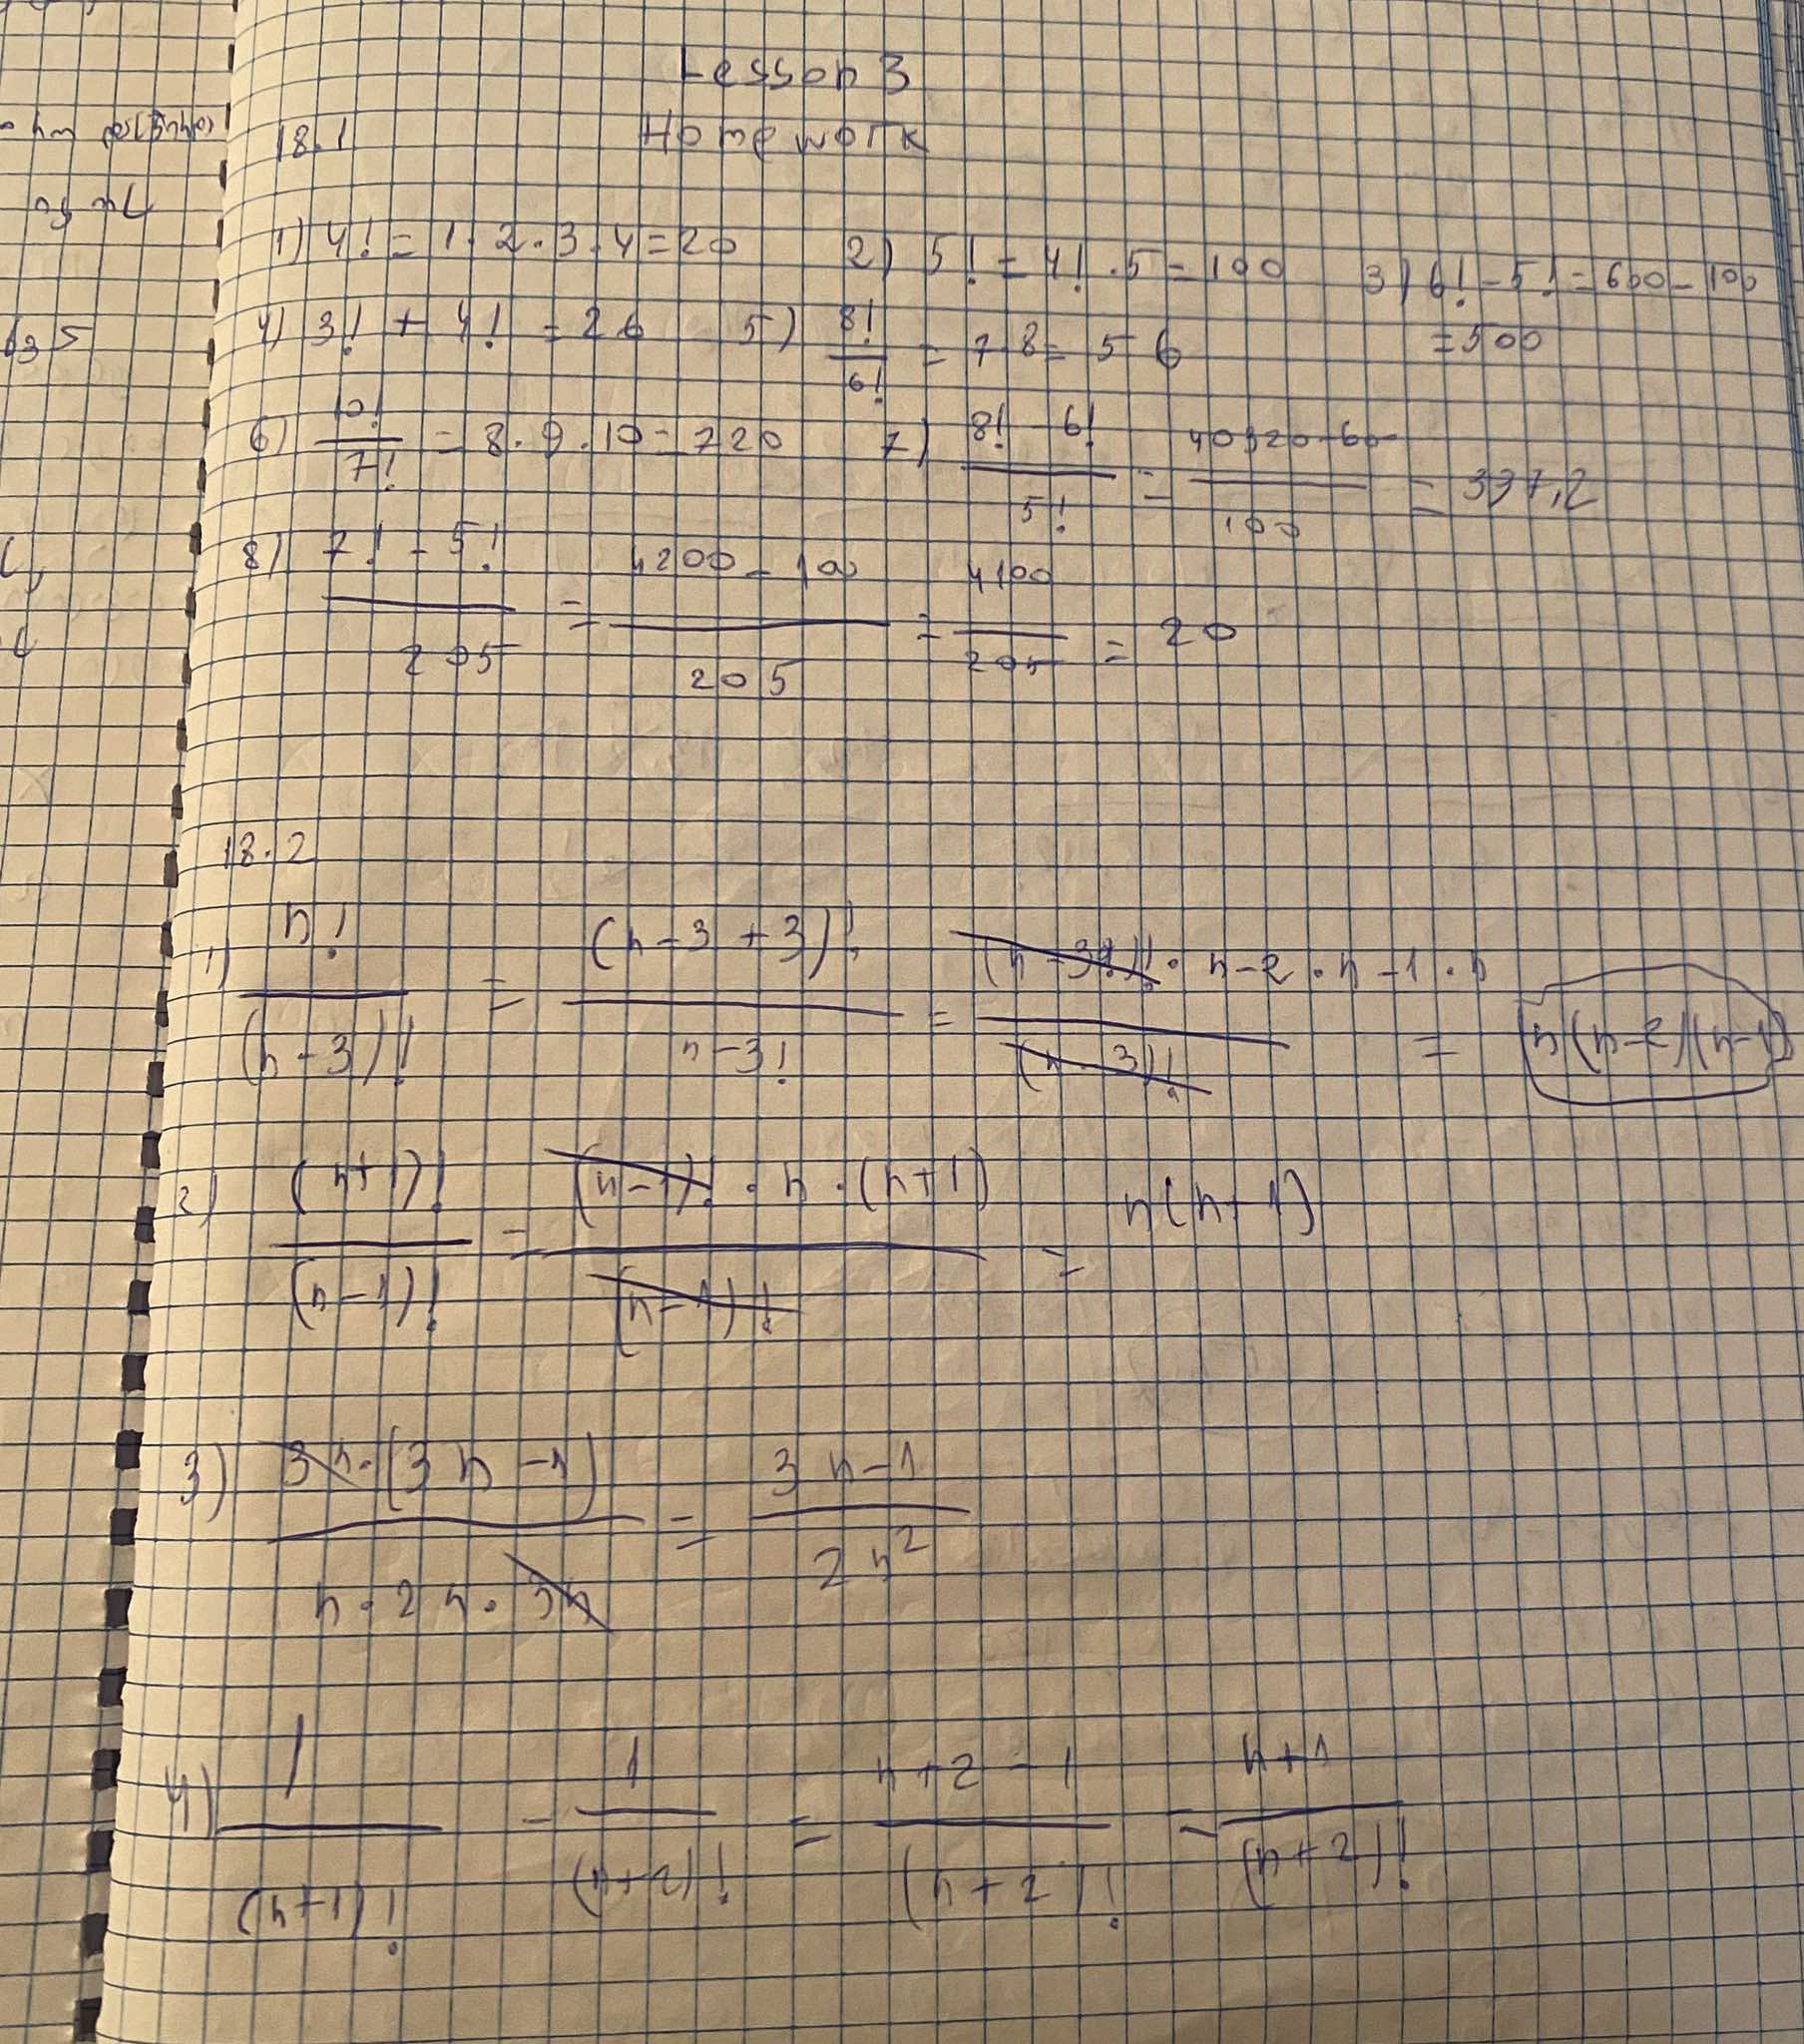 Lesson 3
18.1 Homework
1) 4! = 1·2·3·4=20 2) 5! = 4!·5=100 3) 6!-5!=600-100
=500
4) 3! + 4! = 26 5) 8!/6! = 7·8= 56
6) 10!/7! = 8·9·10=720 7) (8! - 6!)/5! = (40320-600)/100 = 397,2
8) (7! - 5!)/205 = (4200-100)/205 = 4100/205 = 20
18.2
1) n!/(n-3)! = (n-3+3)!/n-3! = (n-3)!·n-2·n-1·n/(n-3)! = n(n-2)(n-1)
2) (n+1)!/(n-1)! = (n-1)!·n·(n+1)/(n-1)! = n(n+1)
3) 3n·(3n-1)/n·2n·3n = 3n-1/2n²
4) 1/(n+1)! - 1/(n+2)! = n+2-1/(n+2)! = n+1/(n+2)!